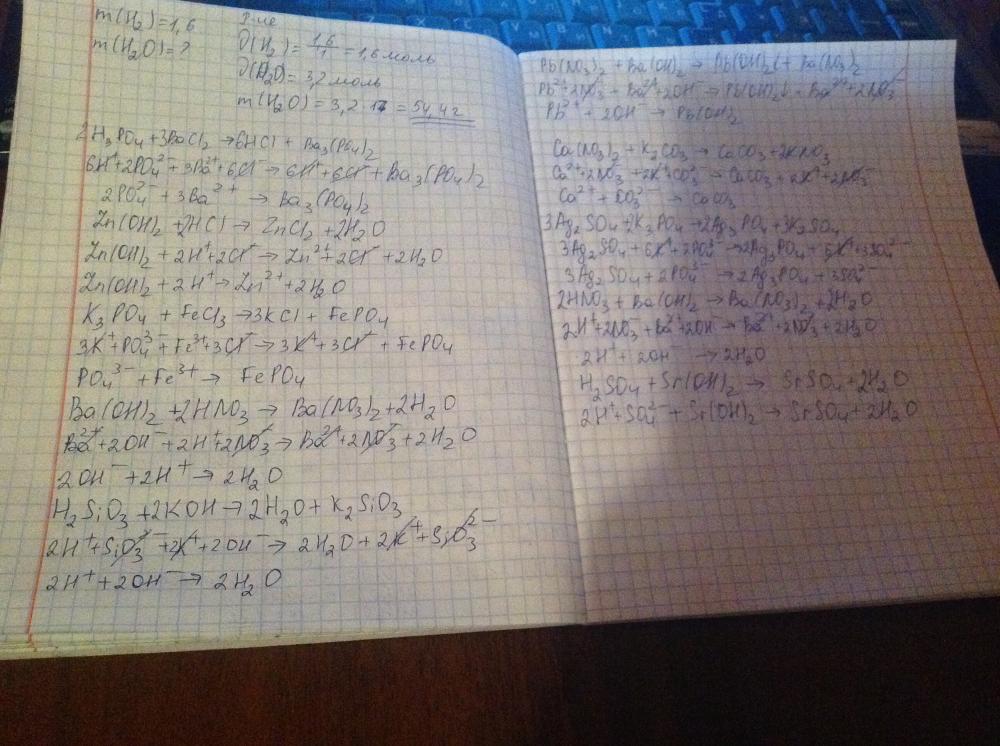 m(H₂)=1,6
m(H₂O)=?
ϑ(H₂)=1,6/1=1,6моль
ϑ(H₂O)=3,2моль
m(H₂O)=3,2·17=54,4г
2H₃PO₄+3BaCl₂→6HCl+Ba₃(PO₄)₂
6H⁺+2PO₄³⁻+3Ba²⁺+6Cl⁻→6H⁺+6Cl⁻+Ba₃(PO₄)₂
2PO₄³⁻+3Ba²⁺→Ba₃(PO₄)₂
Zn(OH)₂+2HCl→ZnCl₂+2H₂O
Zn(OH)₂+2H⁺+2Cl⁻→Zn²⁺+2Cl⁻+2H₂O
Zn(OH)₂+2H⁺→Zn²⁺+2H₂O
K₃PO₄+FeCl₃→3KCl+FePO₄
3K⁺+PO₄³⁻+Fe³⁺+3Cl⁻→3K⁺+3Cl⁻+FePO₄
PO₄³⁻+Fe³⁺→FePO₄
Ba(OH)₂+2HNO₃→Ba(NO₃)₂+2H₂O
Ba²⁺+2OH⁻+2H⁺+2NO₃⁻→Ba²⁺+2NO₃⁻+2H₂O
2OH⁻+2H⁺→2H₂O
H₂SiO₃+2KOH→2H₂O+K₂SiO₃
2H⁺+SiO₃²⁻+2K⁺+2OH⁻→2H₂O+2K⁺+SiO₃²⁻
2H⁺+2OH⁻→2H₂O
Pb(NO₃)₂+Ba(OH)₂→Pb(OH)₂↓+Ba(NO₃)₂
Pb²⁺+2NO₃⁻+Ba²⁺+2OH⁻→Pb(OH)₂↓+Ba²⁺+2NO₃⁻
Pb²⁺+2OH⁻→Pb(OH)₂
Ca(NO₃)₂+K₂CO₃→CaCO₃+2KNO₃
Ca²⁺+2NO₃⁻+2K⁺+CO₃²⁻→CaCO₃+2K⁺+2NO₃⁻
Ca²⁺+CO₃²⁻→CaCO₃
3Ag₂SO₄+2K₃PO₄→2Ag₃PO₄+3K₂SO₄
3Ag₂SO₄+6K⁺+2PO₄³⁻→2Ag₃PO₄+6K⁺+3SO₄²⁻
3Ag₂SO₄+2PO₄³⁻→2Ag₃PO₄+3SO₄²⁻
2HNO₃+Ba(OH)₂→Ba(NO₃)₂+2H₂O
2H⁺+2NO₃⁻+Ba²⁺+2OH⁻→Ba²⁺+2NO₃⁻+2H₂O
2H⁺+2OH⁻→2H₂O
H₂SO₄+Sr(OH)₂→SrSO₄+2H₂O
2H⁺+SO₄²⁻+Sr(OH)₂→SrSO₄+2H₂O